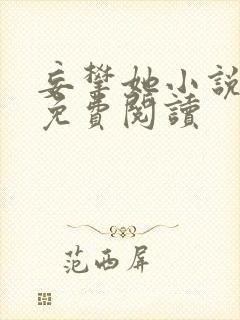 妄攀她小說
免費閱讀
范西屏